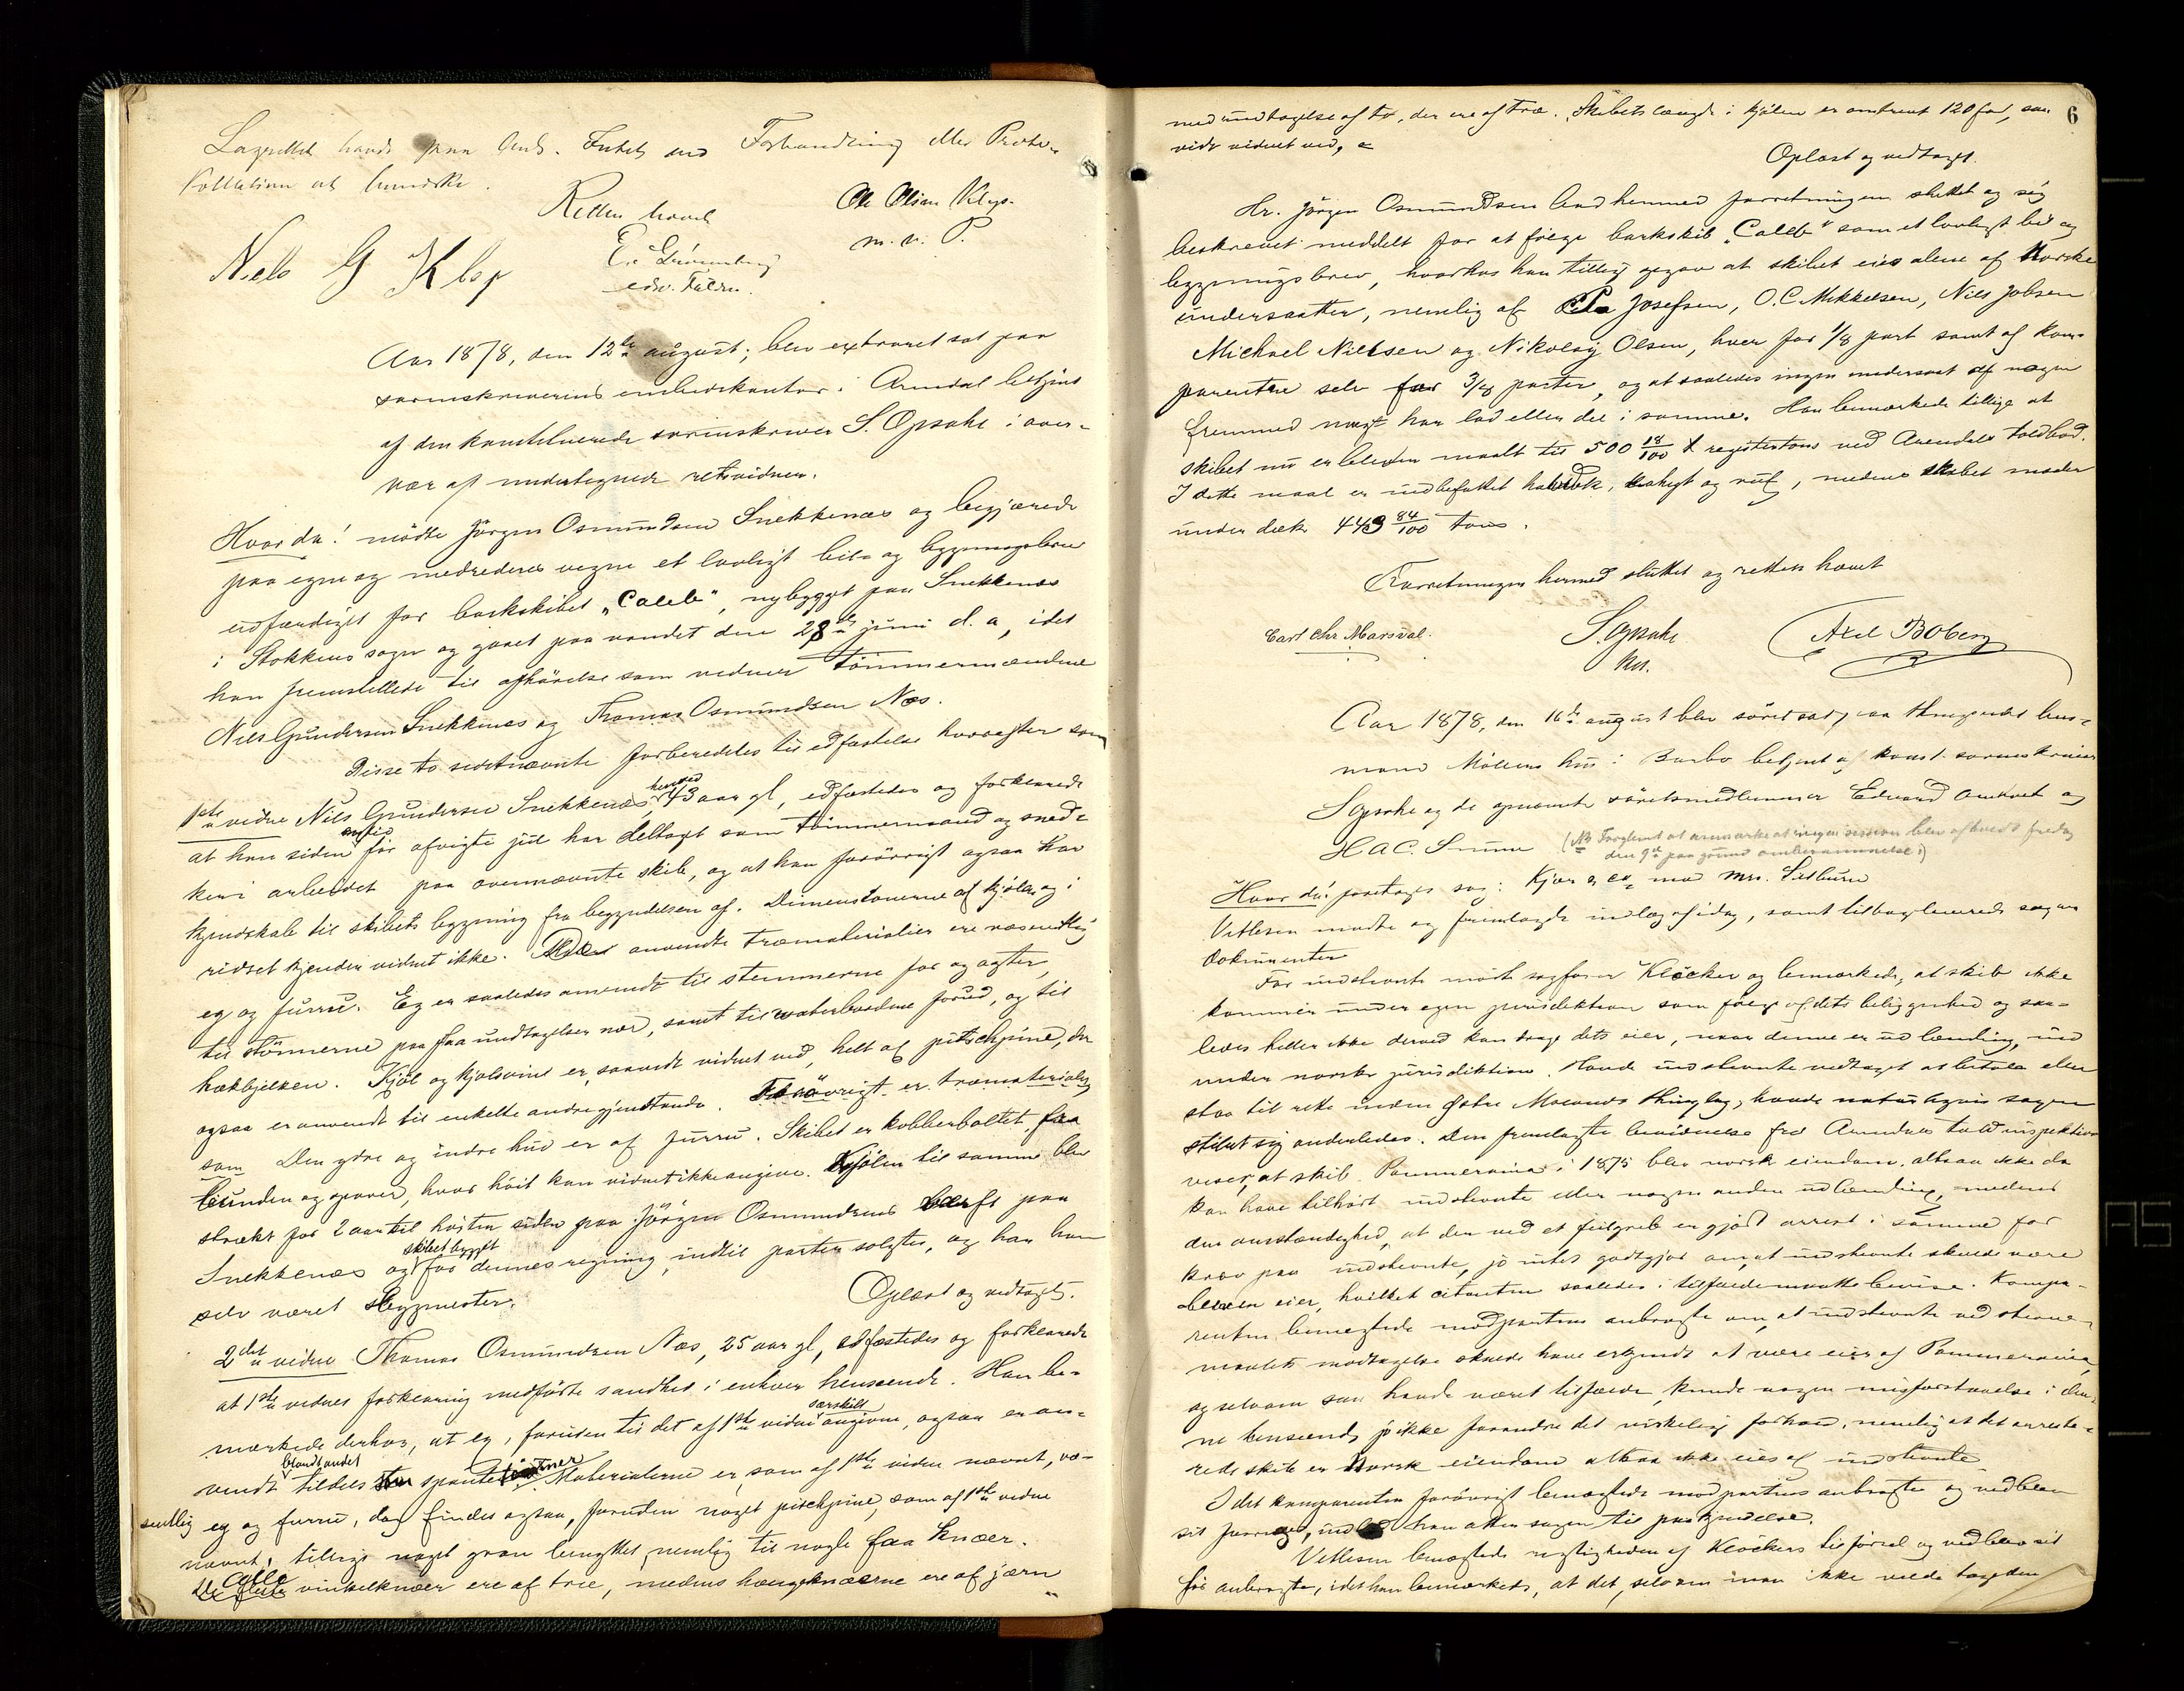 Forhandling eller Proto-
Retten hævet
Ole Olsen Klep.
m. n. P.
Niels G Klep
Aar 1878, den 12te august, blev extraret sat paa
sorenskriverens embedskontor i Arendal betjent
af den konstituerede sorenskriver S. Opsahl i over-
vær af undertegnede retsvidner.
Hvorda! mødte Jörgen Osmundsen Snekkenæs og begjærede
paa egne og medrederes vegne et lovligt bil- og bygningsbrev
udfærdiget for barkskibet „Caleb“, nybygget paa Snekkenæs
i Stokkens sogn og gaaet paa vandet den 28de juni d. a, idet
han fremstillede til afhörelse som vidner tömmermændene
Nils Gundersen Snekkenes og Thomas Osmundsen Næs.
Disse to sidstnævnte forberededes til edfæstelse hvorefter som
1ste vidne Nils Gundersen Snekkenæs, 43 aar gl, edfæstedes og forklarede
at han siden før afvigte jul har deltaget som tömmermand og sned-
ker i arbeidet paa ovennævnte skib, og at han forövrigt ogsaa har
kjendskab til skibets bygning fra begyndelsen af. Dimensionerne af kjölen og i
ridset kjender vidnet ikke. De anvendte træmaterialier ere væsentlig
eg og furru. Eg er saaledes anvendt til stevnerne for og agter,
til stönnerne paa faa undtagelser nær, samt til waterbordene forud, og til
hækbjelken. Kjöl og kjølsviin er, saavidt vidnet ved, helt af pitschpine, der
ogsaa er anvendt til enkelte andre gjenstande. Forövrigt er træmaterialet
som Den ydre og indre hud er af furru. Skibet er kobberboltet fra
bunden og opover, hvor höit kan vidnet ikke angive. Kjölen til samme blev
strakt for 2 aar til høsten siden paa Jörgen Osmundsens værft paa
Snekkenæs og skibet bygget for dennes regning, indtil parten solgtes, og har han
selv været bygmester.
Oplæst og vedtaget.
2det vidne Thomas Osmundsen Næs, 25 aar gl, edfæstedes og forklarede
at 1ste vidnes forklaring medförte sandhed i enhver henseende. Han be-
mærkede derhos, at eg, foruden til det af 1ste vidne særskilt angivne, ogsaa er an-
vendt blandt andet tildels spante Materialerne er, som af 1ste vidne nævnt, væ-
sentlig eg og furru, dog findes ogsaa, foruden noget pitchpine, som af 1ste vidne
nævnt, tillige noget gran benyttet, nemlig til nogle faa knæer.
Alle vinkelknæer ere af træ, medens hængeknæerne ere af jærn
6
med undtagelse af to, der ere af træ. Skibets længde i kjølen er omtrent 120 fod, saa
vidt vidnet ved,
Oplæst og vedtaget.
Hr. Jörgen Osmundsen bad hermed forretningen sluttet og sig
beskrevet meddelt for at fölge barkskib „Caleb“ som et lovligt bil og
bygningsbrev, hvorhos han tillige opgav at skibet eies alene af Norske
undersaatter, nemlig af Josefsen, O.C. Mikkelsen, Nils Jobsen
Michael Nielsen og Nikolay Olsen, hver for 1/8 part samt af kom-
parenten selv for 3/8 parter, og at saaledes ingen undersaat af nogen
fremmed magt har lod eller del i samme. Han bemærkede tillige at
skibet nu er bleven maalt til 500 18/100 registertons ved Arendals toldbod.
I dette maal er indbefattet halvdæk, kahyt og ruf, medens skibet maaler
under dæk 443 84/100 tons.
Forretningen hermed sluttet og retten hævet
Carl Chr. Marsdal.
S. Opsahl
kst.
Axel Boberg
Aar 1878, den 16de august blev söret sat paa thingstedet hus-
mand Möllers hus i Barbo betjent af konst. sorenskriver
S. Opsahl og de opnævnte söretsmedlemmer Edvard Omholt og
H A C. Smith (NB Forglemt at anmærke at ingen session blev afholdt fredag
den 9de paa grund omberammelse.)
Hvor da! foretoges sag: Kjær & co mod Mrs. Silburn
Vetlesen mødte og fremlagde indlæg af idag, samt tilbageleverede sagens
dokumenter
For indstevnte mödte sagfører Klöcker og bemærkede, at skib ikke
kommer under egen jurisdiktion som følge af dets beliggenhed og saa-
ledes heller ikke derved kan drage dets eier, naar denne er udlænding, ind
under norsk jurisdiktion. Havde indstevnte vedtaget at betale eller
staa til rette inden Østre Molands thinglag, havde naturligvis sagen
stillet sig anderledes. Den fremlagte bevidnelse fra Arendals toldinspektion
viser, at skib Pommerania i 1875 blev norsk eiendom, altsaa ikke da
kan have tilhørt indstevnte eller nogen anden udlænding, medens
den omstændighed, at der ved et feilgreb er gjort arrest i samme for
krav paa indstevnte, jo intet godtgjør om, at indstevnte skulde være
bleven eier, hvilket citanten saaledes i tilfælde maatte bevise. Kompa-
renten benegtede modpartens anbragte om, at indstevnte ved stevne-
maalets modtagelse skulde have erkjendt at være eier af Pommerania,
og selv om saa havde været tilfælde, kunde nogen misforstaaelse i den-
ne henseende jo ikke forandre det virkelige forhold, nemlig at det arreste-
rede skib er Norsk eiendom altsaa ikke eies af indstevnte
Idet komparenten forövrigt benegtede modpartens anbragte og vedblev
sit forrige, indlod han atter sagen til paakjendelse.
Vetlesen benegtede rigtigheden af Klöckers tilførsel og vedblev sit
før anbragte, idet han bemærkede, at det, selv om man ikke vilde tage den